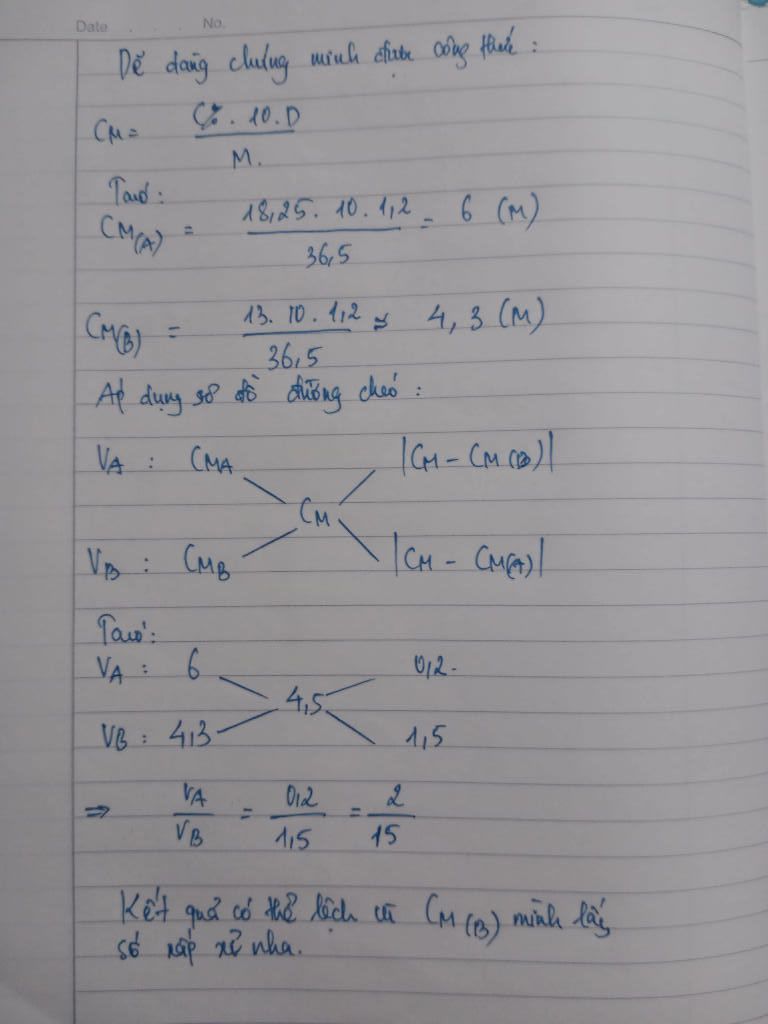 Date No.
Dễ dàng chứng minh được công thức :
CM = C%. 10. D / M.
Ta có:
CM(A) = 18,25. 10. 1,2 / 36,5 = 6 (M)
CM(B) = 13. 10. 1,2 / 36,5 ≈ 4,3 (M)
Áp dụng sơ đồ đường chéo :
VA : CMA |CM - CM(B)|
CM
VB : CMB |CM - CM(A)|
Ta có:
VA : 6 0,2
4,5
VB : 4,3 1,5
⇒ VA / VB = 0,2 / 1,5 = 2 / 15
Kết quả có thể lệch vì CM(B) mình lấy
số xấp xỉ nha.